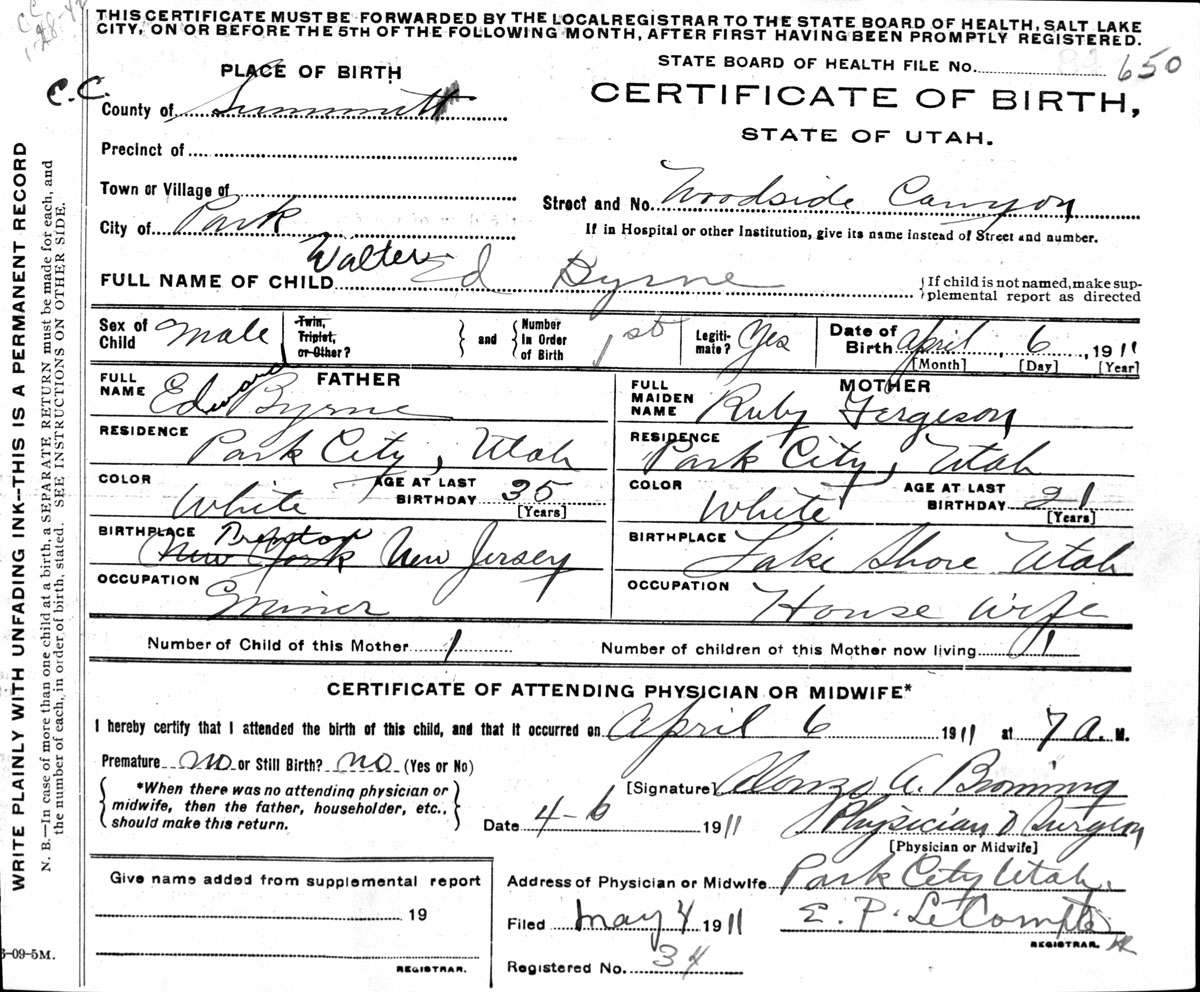 THIS CERTIFICATE MUST BE FORWARDED BY THE LOCAL REGISTRAR TO THE STATE BOARD OF HEALTH, SALT LAKE
CITY, ON OR BEFORE THE 5TH OF THE FOLLOWING MONTH, AFTER FIRST HAVING BEEN PROMPTLY REGISTERED.
STATE BOARD OF HEALTH FILE No. 650
PLACE OF BIRTH
CERTIFICATE OF BIRTH,
C.C.
County of Summitt
STATE OF UTAH.
Precinct of
Town or Village of
Street and No. Woodside Canyon
City of Park
If in Hospital or other Institution, give its name instead of Street and number.
Walter
FULL NAME OF CHILD Ed Byrne
{If child is not named, make sup-
plemental report as directed
Sex of Child Male
Twin, Triplet, or Other?
and
Number In Order of Birth 1st
Legiti-mate? Yes
Date of Birth April 6, 1911
[Month] [Day] [Year]
FATHER
FULL NAME Edward Byrne
MOTHER
FULL MAIDEN NAME Ruby Fergeson
RESIDENCE Park City, Utah
RESIDENCE Park City, Utah
COLOR White AGE AT LAST BIRTHDAY 35 [Years]
COLOR White AGE AT LAST BIRTHDAY 21 [Years]
BIRTHPLACE New York New Jersey
BIRTHPLACE Lake Shore Utah
OCCUPATION Miner
OCCUPATION House Wife
Number of Child of this Mother 1
Number of children of this Mother now living 1
CERTIFICATE OF ATTENDING PHYSICIAN OR MIDWIFE*
I hereby certify that I attended the birth of this child, and that it occurred on April 6 1911 at 7 A. M.
Premature no or Still Birth? no (Yes or No)
*When there was no attending physician or
midwife, then the father, householder, etc.,
should make this return.
[Signature] Alonzo A.
Date 4-6 1911
Physician & Surgeon
[Physician or Midwife]
Give name added from supplemental report
19
REGISTRAR.
Address of Physician or Midwife Park City Utah.
Filed May 4 1911 E. P. LeCompte
REGISTRAR.
Registered No. 34
WRITE PLAINLY WITH UNFADING INK--THIS IS A PERMANENT RECORD
N. B.—In case of more than one child at a birth, a SEPARATE RETURN must be made for each, and
the number of each, in order of birth, stated. SEE INSTRUCTIONS ON OTHER SIDE.
-09-5M.